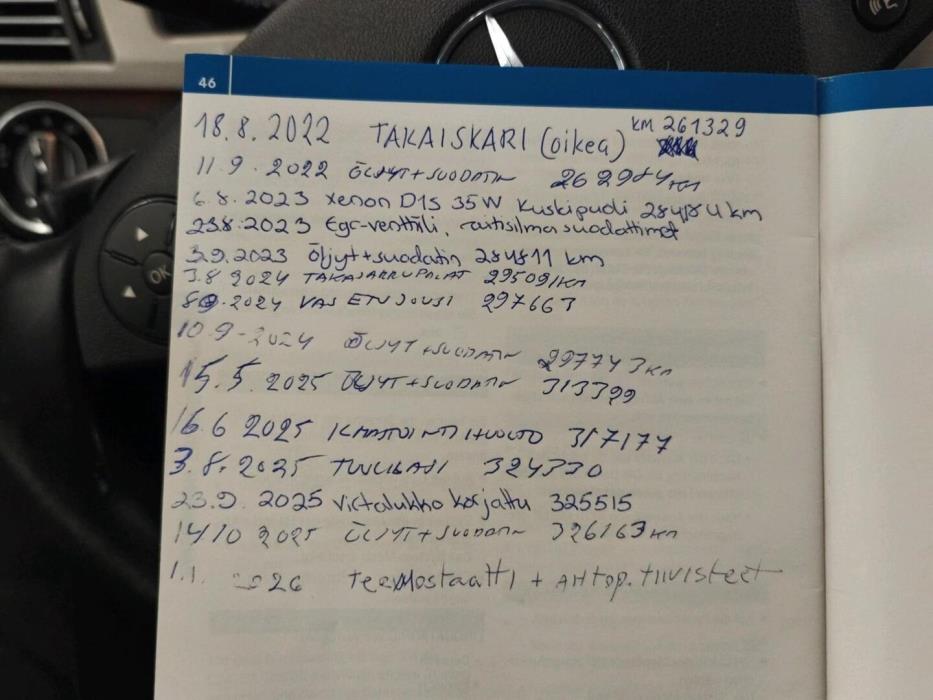 46
18.8.2022 TAKAISKARI (oikea) KM 261329
11.9.2022 ÖLJYT+SUODATIN 262984KM
6.8.2023 Xenon D1S 35W Kuskipuoli 284784 km
23.8.2023 Egr-venttiili, raitisilmasuodattimet
3.9.2023 Öljyt+suodatin 284811 km
3.8 2024 TAKAJARRUPALAT 295091KM
8.9.2024 VAS ETUJOUSI 297663
10.9-2024 ÖLJYT+SUODATIN 297743KM
15.5.2025 ÖLJYT+SUODATIN 313399
16.6 2025 ILMASTOINTIHUOLTO 317177
3.8.2025 TUULILASI 324330
23.9.2025 Virtalukko korjattu 325515
14/10 2025 ÖLJYT+SUODATIN 326163KM
1.1. 2026 Termostaatti + AHTOP.tiivisteet
OK